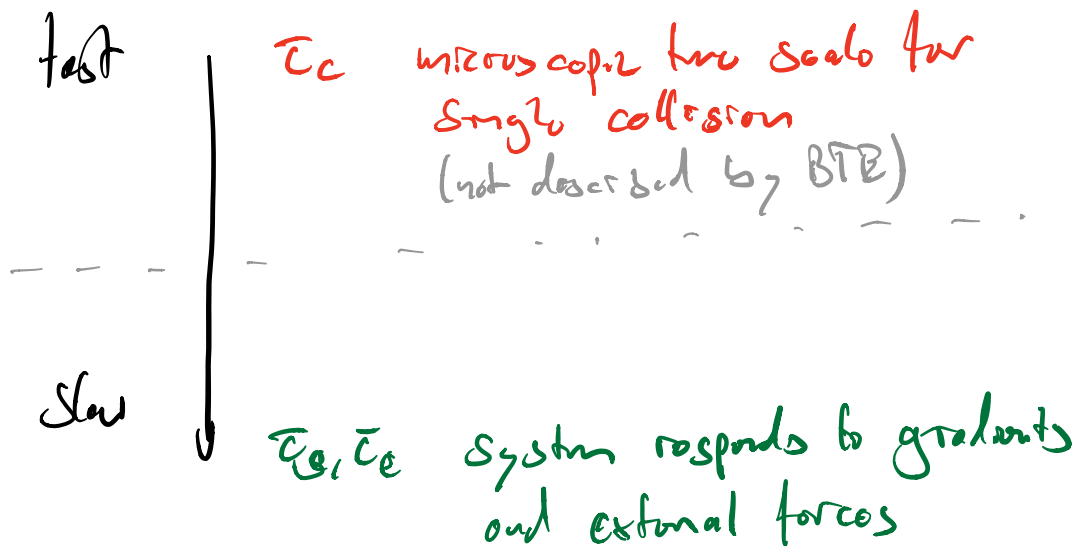 fast
τ_c microscopic time scale for
single collision
(not described by BTE)
slow
τ_s, τ_e system responds to gradients
and external forces